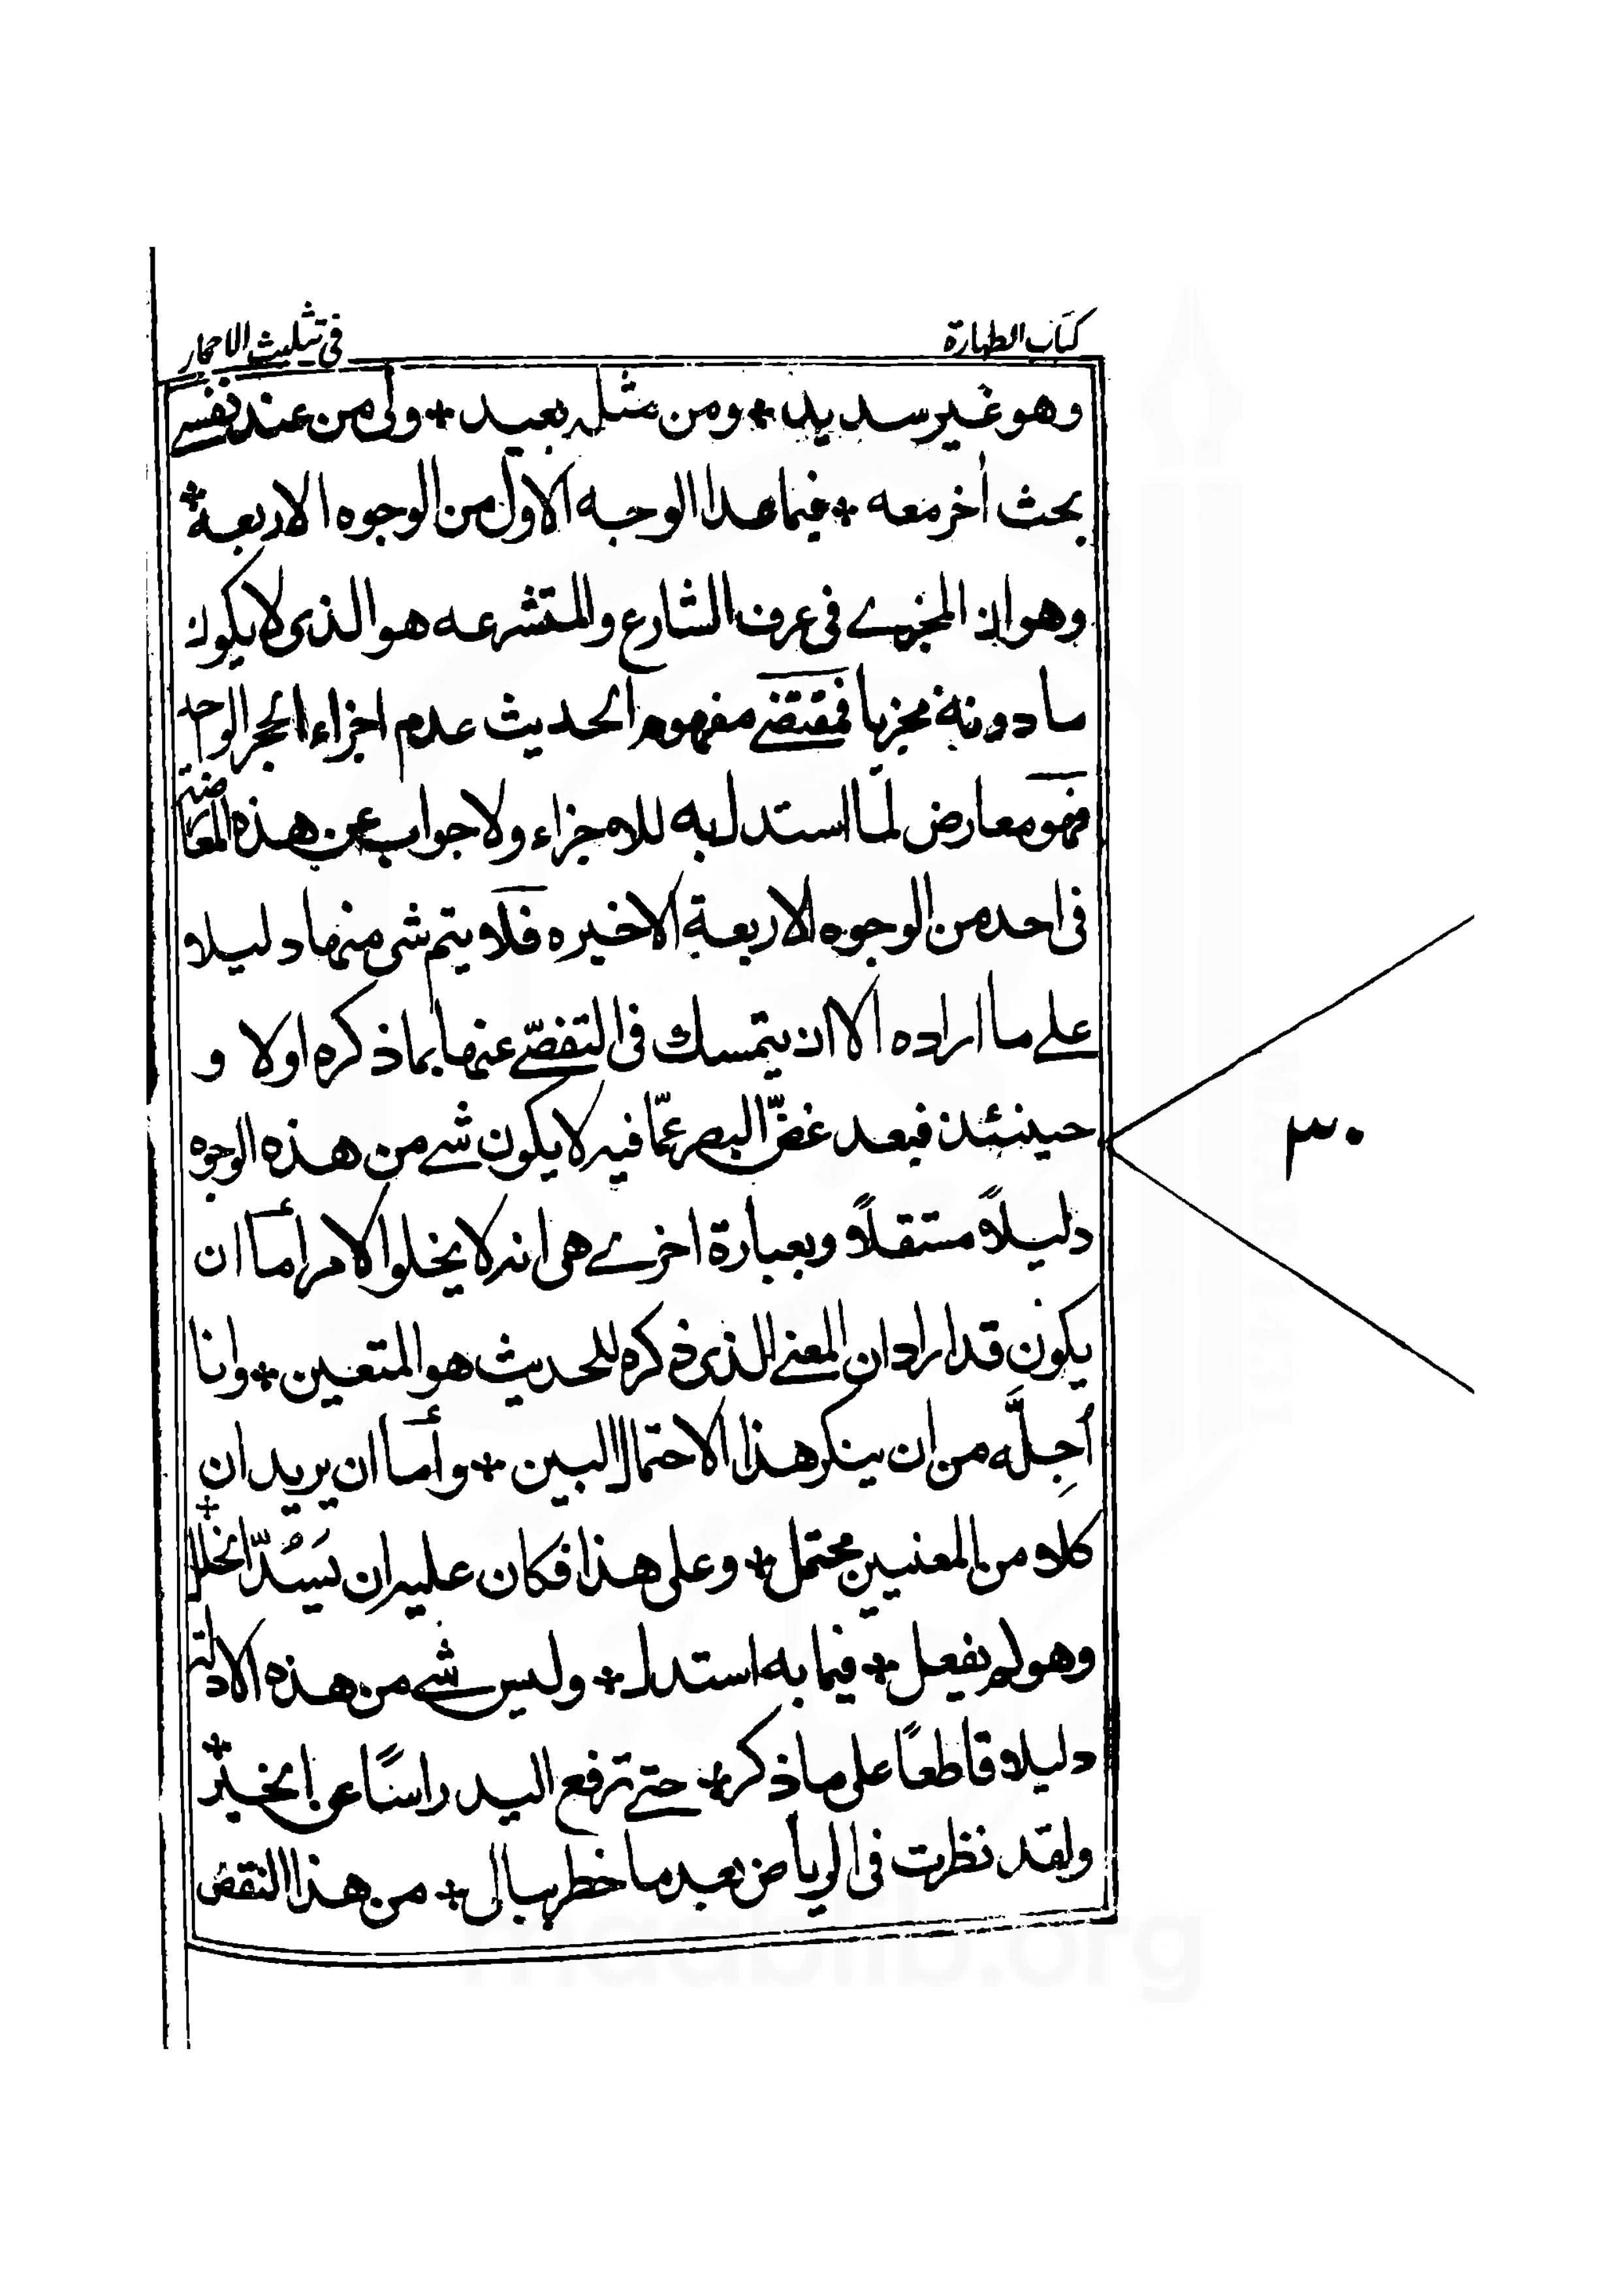 كتاب الطهارة
في تثليث الاحجار
وهو غير سديد + ومن مثله بعيد + ولي من عند نفسي
بحث أخر معه + فيما عدا الوجه الاول من الوجوه الاربعة +
وهو ان المجزے في عرف الشارع والمتشرعه هو الذى لا يكون
ما دونه مجزيا فمقتضے مفهوم الحديث عدم اجزاء الحجر الواحد
فهو معارض لما استدل به للاجزاء ولا جواب عن هذه المعارضة
فى احد من الوجوه الاربعة الاخيره فلا يتم شى منها دليلا
علے ما اراده الا ان يتمسك فى التفصّے عنها بما ذكره اولا و
حينئذ فبعد غضّ البصر عمّا فيه لا يكون شے من هذه الوجوه
دليلاً مستقلاً وبعبارة اخرے هى انه لا يخلوا الامر أما ان
يكون قد اراد ان المعنے الذى ذكره للحديث هو المتعين + وانا
أُجِلَّه من ان ينكر هذا الاحتمال البين + وأما ان يريد ان
كلا من المعنيين محتمل + وعلى هذا فكان عليه ان يَسُدّ الخلل +
وهو لم يفعل + فيما به استدل + وليس شے من هذه الادلة
دليلا قاطعًا على ما ذكر + حتے ترفع اليد راسًا عن الخبر +
ولقد نظرت فى الرياض بعد ما خطر ببالى + من هذا النقض
٣٠
maablib.org